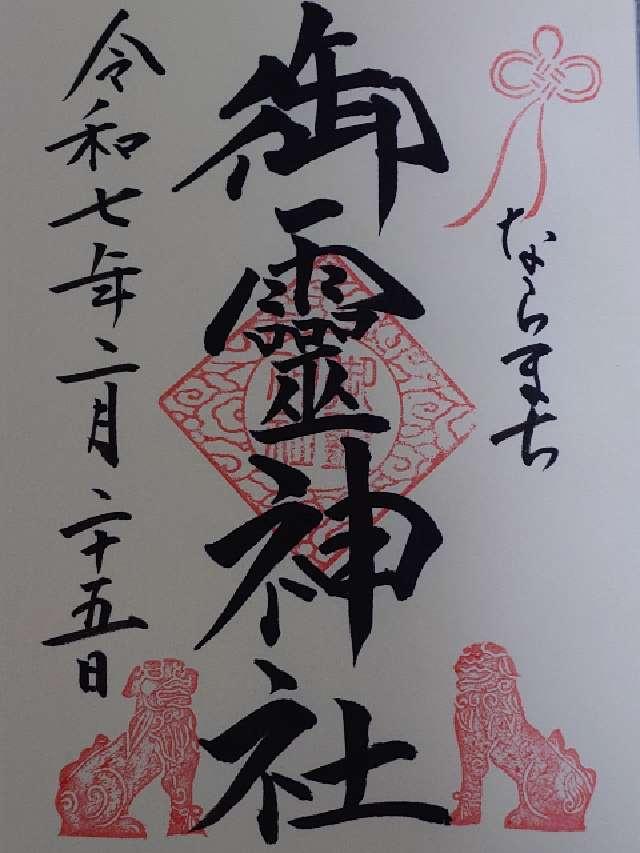 ならまち
御靈神社
令和七年二月二十五日